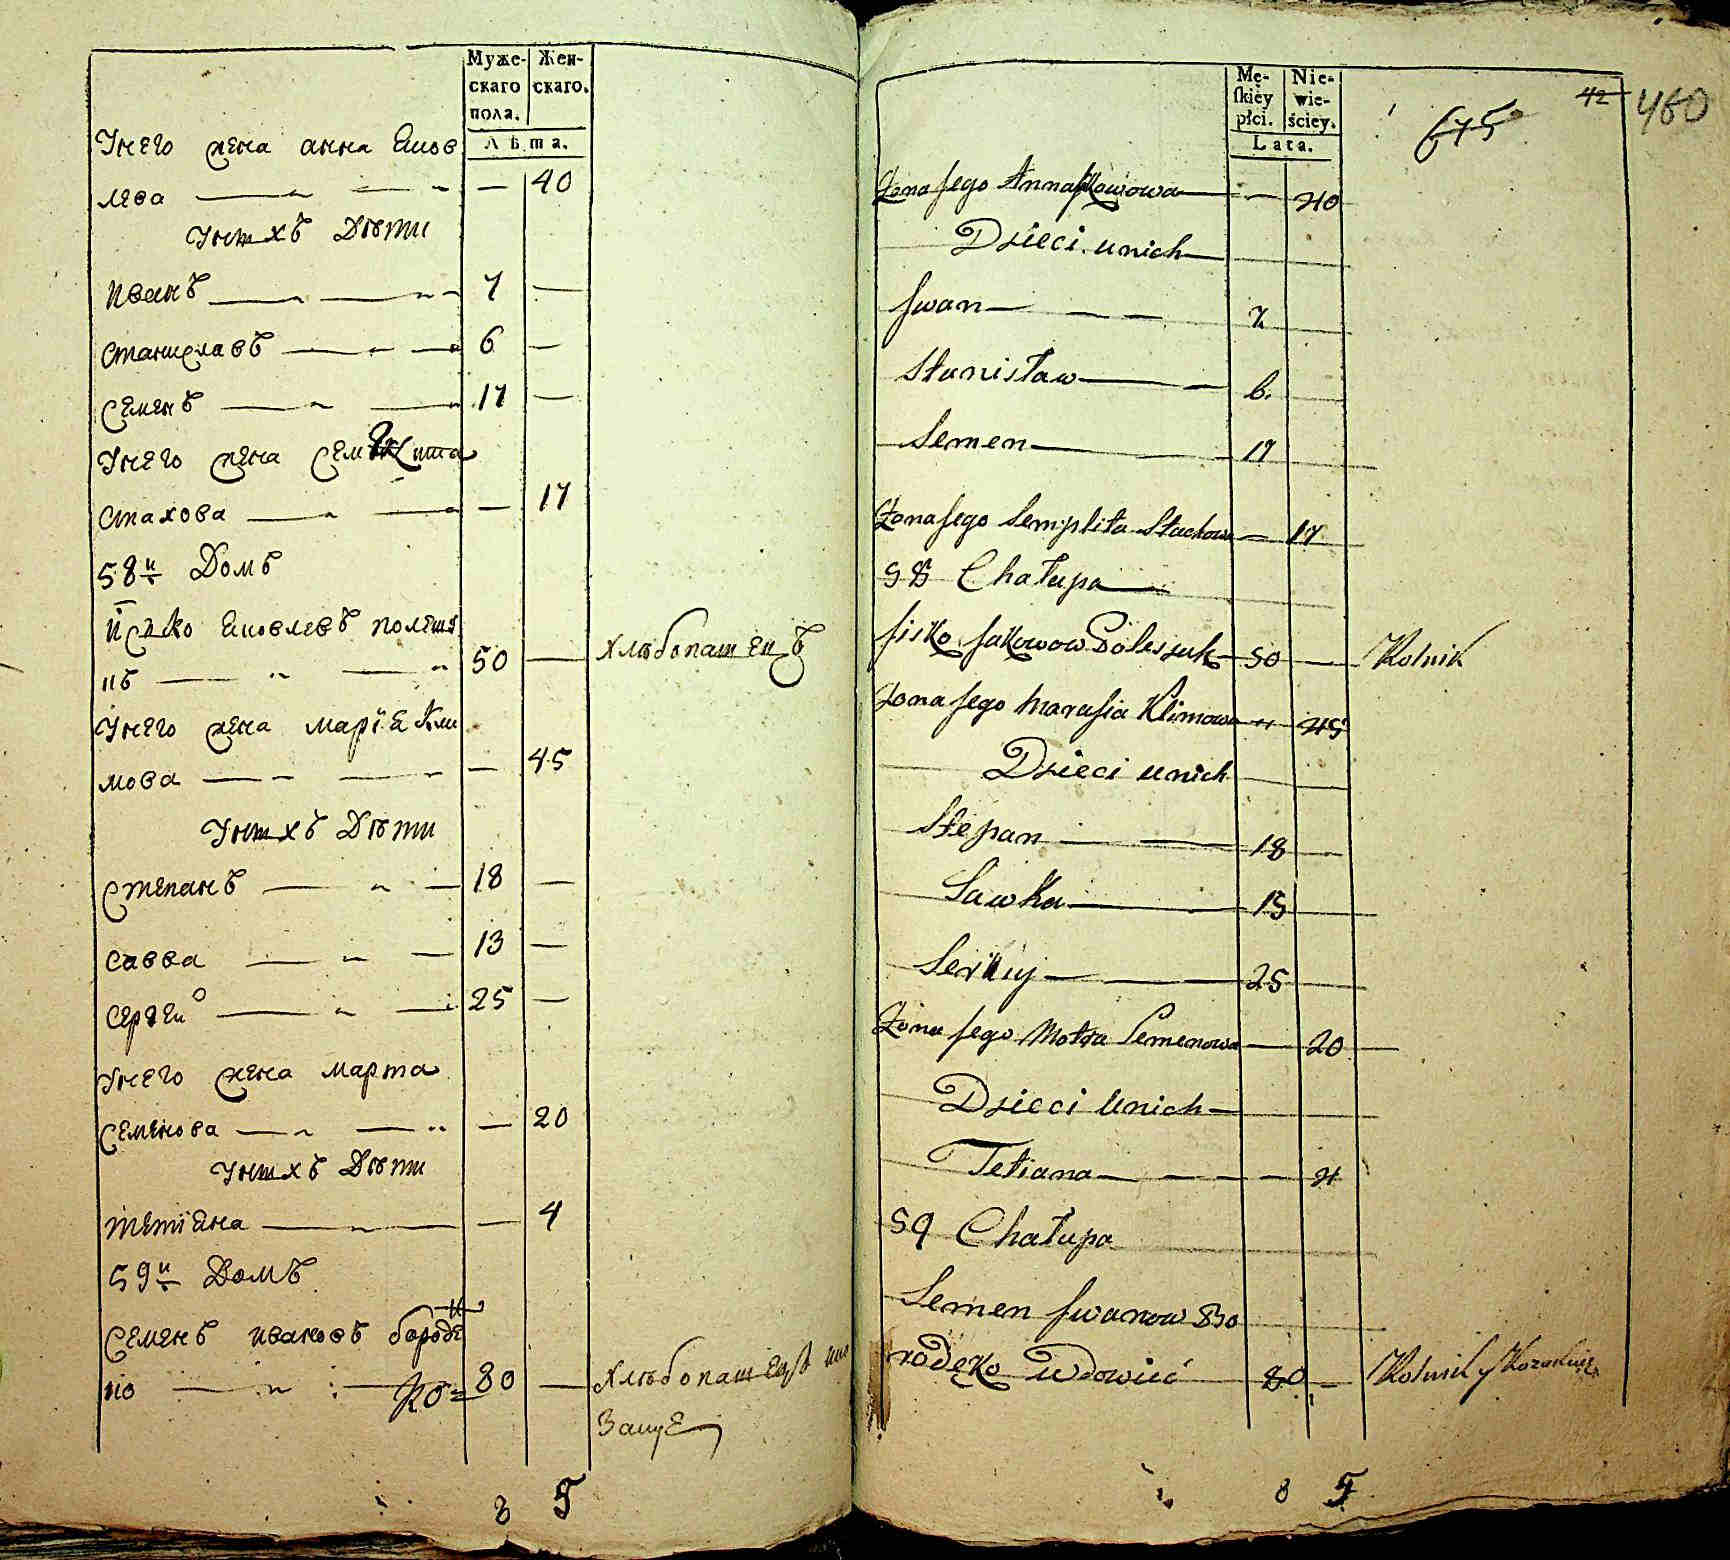 Муже-
скаго
пола.
Жен-
скаго.
Лѣта.
Унего жена анна Яков
лева — — 40
Унихъ Дѣти
иванъ — 7 —
Станиславъ — 6 —
Семенъ — 17 —
Унего жена Семплита
Стахова — — 17
58й Домъ
Иско Яковлевъ полеш
50 — хлѣбопашецъ
Унего жена марія Кли
мова — — 45
Унихъ Дѣти
Степанъ — 18 —
Савва — 13 —
Сергеи — 25 —
Унего жена марта
Семенова — — 20
Унихъ Дѣти
тетіяна — — 4
59й Домъ
Семенъ ивановъ бороде
ко 80 — хлѣбопашецъ
8 5
Mę-
skiéy
płci.
Nie-
wie-
ściey.
Lata.
42
460
675
Żona Jego Anna Jakowowa — — 40
Dzieci unich —
Jwan — 7
Stanisław — 6.
Semen — 17
Żona Jego Semplita Stachowa — 17
58 Chałupa —
Jsko Jakowow Poleszuk — 50 — Rolnik
Żona Jego Marusia Klimowa — 45
Dzieci unich
Stepan — 18 —
Sawka — 13
Serhiy — 25
Żona Jego Motra Semenowa — 20
Dzieci Unich —
Tetiana — — 4
59 Chałupa
Semen Jwanow Bo
rodeko Wdowiec 80 — Rolnik y
8 5